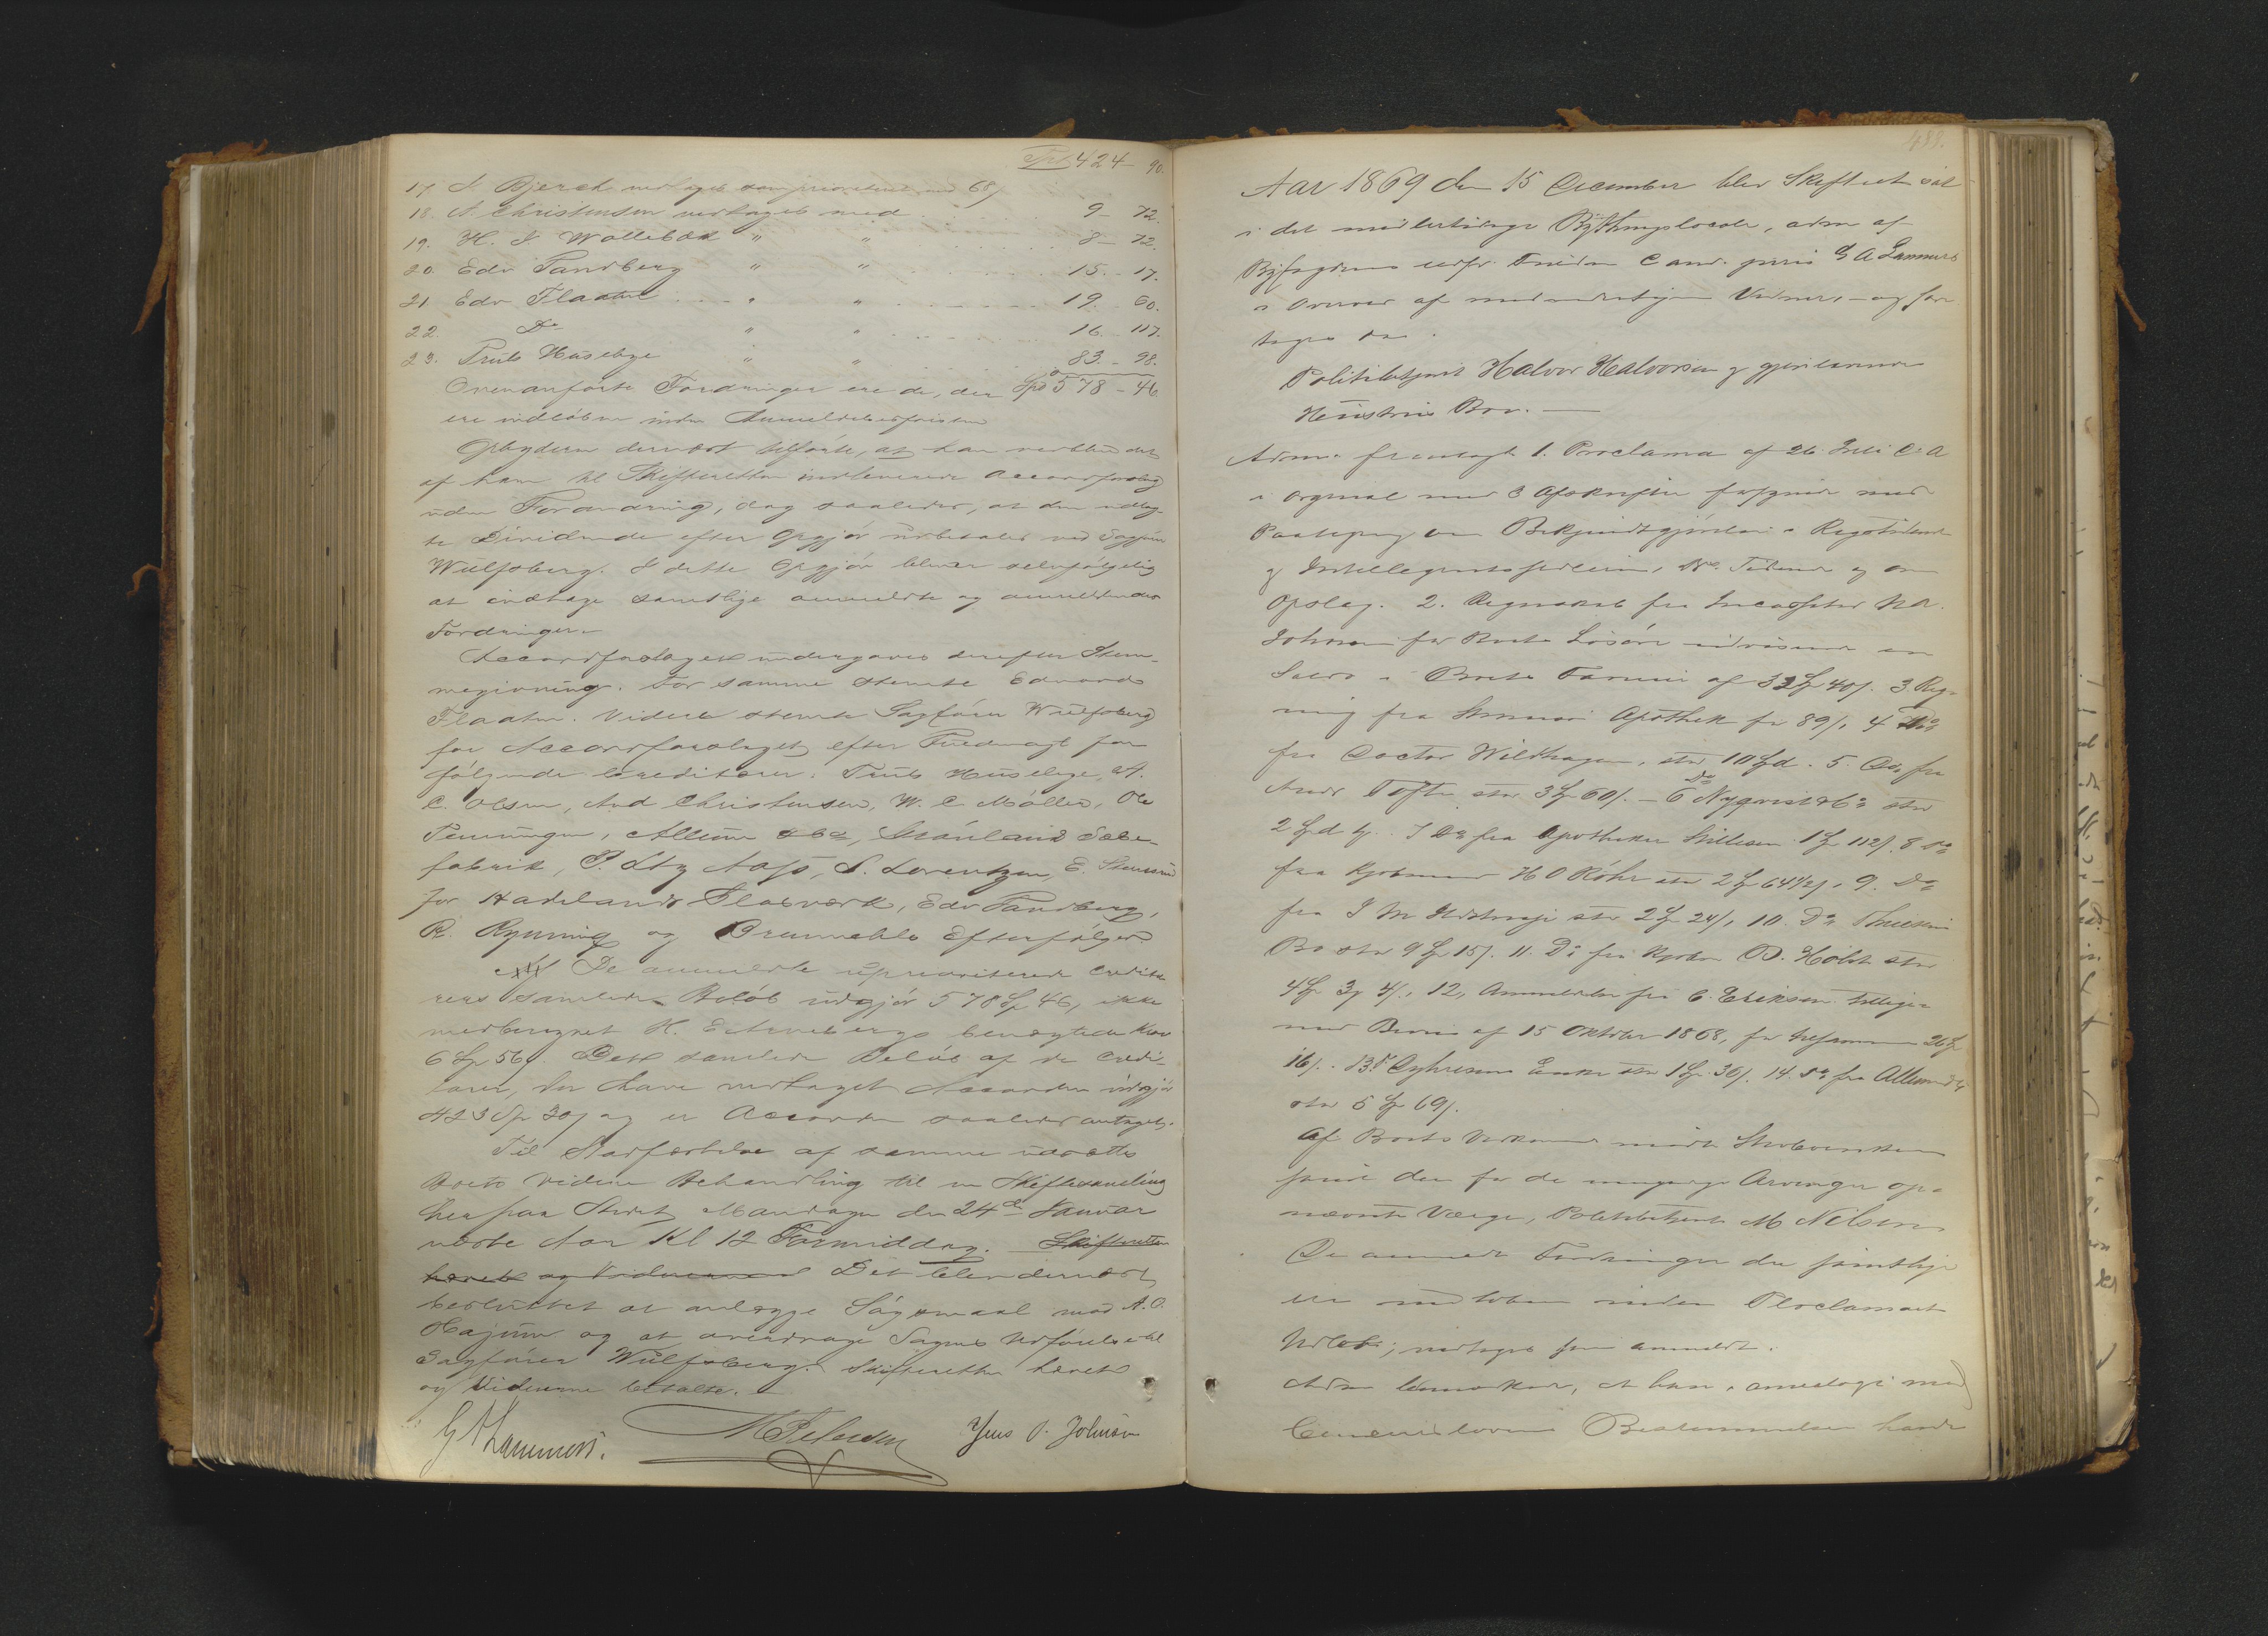 Trp 424 - 90.
17. J. Bjerck vedtaget som prioriteret med 68/
18. A. Christensen vedtaget med 9 - 72.
19. H. J. Wallebæk " " 8 - 72.
20. Edv Tandberg " " 15 - 17.
21. Edv Flaatne " " 19. 60.
22. Do " " 16 - 117.
23. Truls Huseby " " 83 - 98.
Ovenanførte Fordringer ere de, der Spd 578 - 46
ere indløbne inden Anmeldelsesfristen
Opbyderen dernæst tilførte, at han vedblev det
af ham til Skifteretten indleverede Accordforslag
uden Forandring, dog saaledes, at den udlag-
te Dividende efter Opgjør udbetales ved Sagfører
Wulfsberg. I dette Opgjør bliver selvfølgelig
at indtage samtlige anmeldte og
Fordringer.
Accordforslaget undergaves derefter Stem-
megivning. For samme stemte Edvard
Flaatne. Videre stemte Sagfører Wulfsberg
for Accordforslaget efter Fuldmagt for
følgende Creditorer: Truls Huseby, A.
C. Olsen, And Christensen, W. C. Møller, Ole
Allum & Co, Skånland Sæbe-
fabrik, P. Ltz Aass, S. Lorentzen, E.
for Hadelands Glasværk, Edv Tandberg,
R. Rynning og Efterfølger.
De anmeldte uprioriterede Credito-
rers samlede Beløb udgjør 578 Sp 46, ikke
medberegnet H. benægtede Krav
6 Sp 56/. Det samlede Beløb af de Credi-
torer, der have vedtaget Accorden udgjør
423 Sp 30/ og er Accorden saaledes antaget.
Til Stadfæstelse af samme udsættes
Boets videre Behandling til en Skiftesamling
her paa Stedet Mandagen den 24de Januar
næste Aar Kl 12 Formiddag. Skifteretten
hævet og Vidnerne Det blev dernæst
besluttet at anlægge Søgsmaal mod A. O.
Hajum og at overdrage Sagens Udførelse til
Sagfører Wulfsberg. Skifteretten hævet
og Vidnerne betalte.
G A Lammers. M Pedersen Jens P. Johnsen
488.
Aar 1869 den 15 December blev Skifteret sat
i det midlertidige Bythingslocale, adm af
Byfogdens edsf. Fuldm Cand. juris G A Lammers
i Overvær af medundertegnede Vidner, - og fore
toges da:
Politibetjent Halvor Halvorsen og gjenlevende
Hustrus Bo. -
Adm. fremlagde 1. Proclama af 26 Juli d. A
i orginal med 3 Afskrifter forsynede med
Paategning om Bekjendtgjørelse i Rigstidende
og Intelligentssedlerne, Drs. Tidende og om
Opslag. 2. Regnskab fra Incassator N A.
Johnsen for Boets Løsøre udvisende en
Saldo i Boets Faveur af 32 Sp 40/. 3 Reg-
ning fra Apothek for 89/, 4 Do
fra Doctor Wildhagen, stor 10 Spd. 5. Do fra
Andr Tofte stor 3 Sp 60/. - 6 Do Nyqvist & Co stor
2 Spd 7 Do fra Apotheker 1 Sp 112/. 8 Do
fra Kjøbmand H O Røhr stor 2 Sp 64 1/2/, 9. Do
fra J M stor 2 Sp 24/, 10. Do
Bo stor 9 Sp 15/. 11. Do fra Kjøbm B. Holst stor
4 Sp 3 4/., 12, Anmeldelse fra C. Eriksen tilligem
med Bevis af 15 Oktober 1868, for tilsammen 26 Sp
16/. 13. Do Dyhrens Enke stor 1 Sp 30/. 14. Do fra Allum & Co
stor 5 Sp 69/.
Af Boets Vedkommende mødte Stervboenken
samt den for de umyndige Arvinger op-
nævnte Værge, Politibetjent M Nilsen
De anmeldte Fordringer der samtlige
ere indløbne inden Proclamaets
Udløb, vedtages som anmeldt.
Adm bemærkede, at han i analogi med
Concurslovens Bestemmelser havde